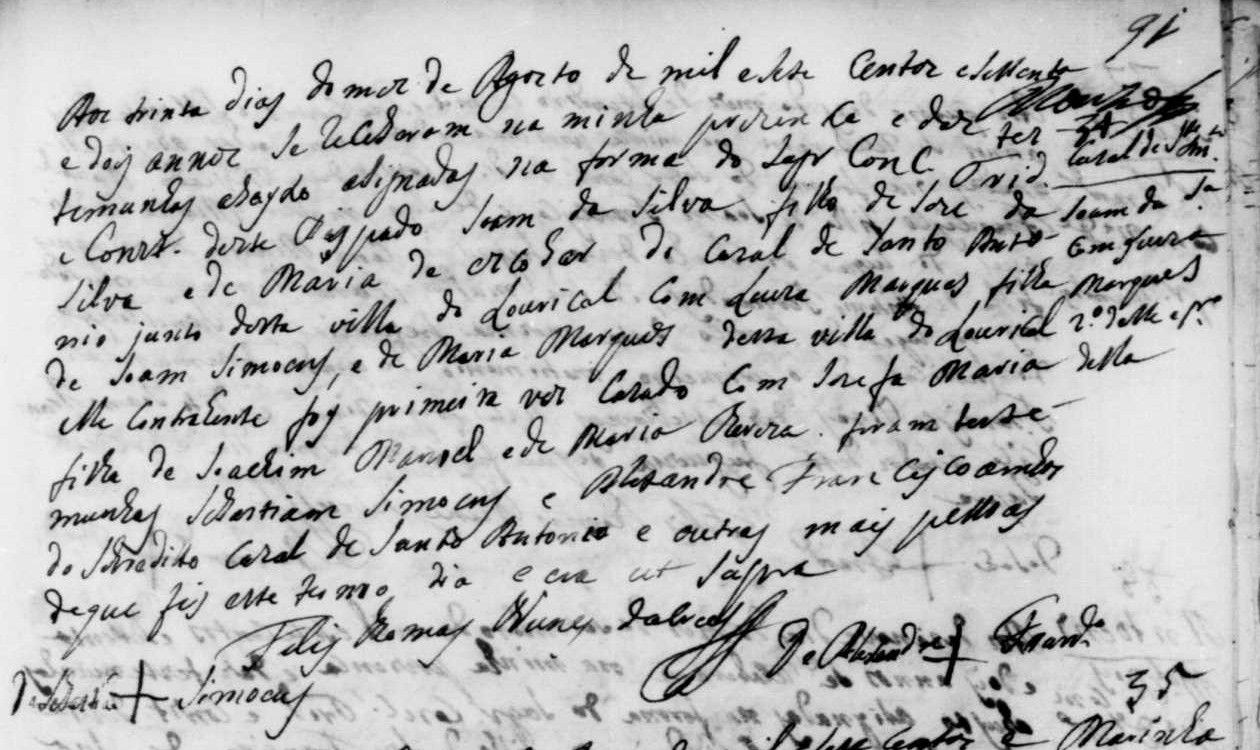 91
Aos trinta dias do mes de Agosto de mil e sete centos e settenta
e dois annos se receberam na minha prezenca e das tes
temunhas abaxo asignadas na forma do Sagr Conc. Trid.
e Const. deste Bispado Joam da Silva filho de Joze da
Silva e de Maria de do Cazal de Santo Anto
nio junto desta villa do Lourical com Luiza Marques filha
de Joam Simoens, e de Maria Marques desta villa do Lourical
elle contrahente foy primeira ves cazado com Josefa Maria
filha de Joachim Manoel e de Maria foram teste
munhas Sebastiam Simoens e Alexandre Francisco ambos
do sobredito Cazal de Santo Antonio e outras mais pessoas
de que fis este termo dia e era ut supra
Felis Ramos Nunes
De Alexandre + Franco
De Sebastiao + Simoens
34
Cazal de Sto Ant.
Joam da Sa
com Luiza
Marques
2o delle e pro
della
35
Marinha